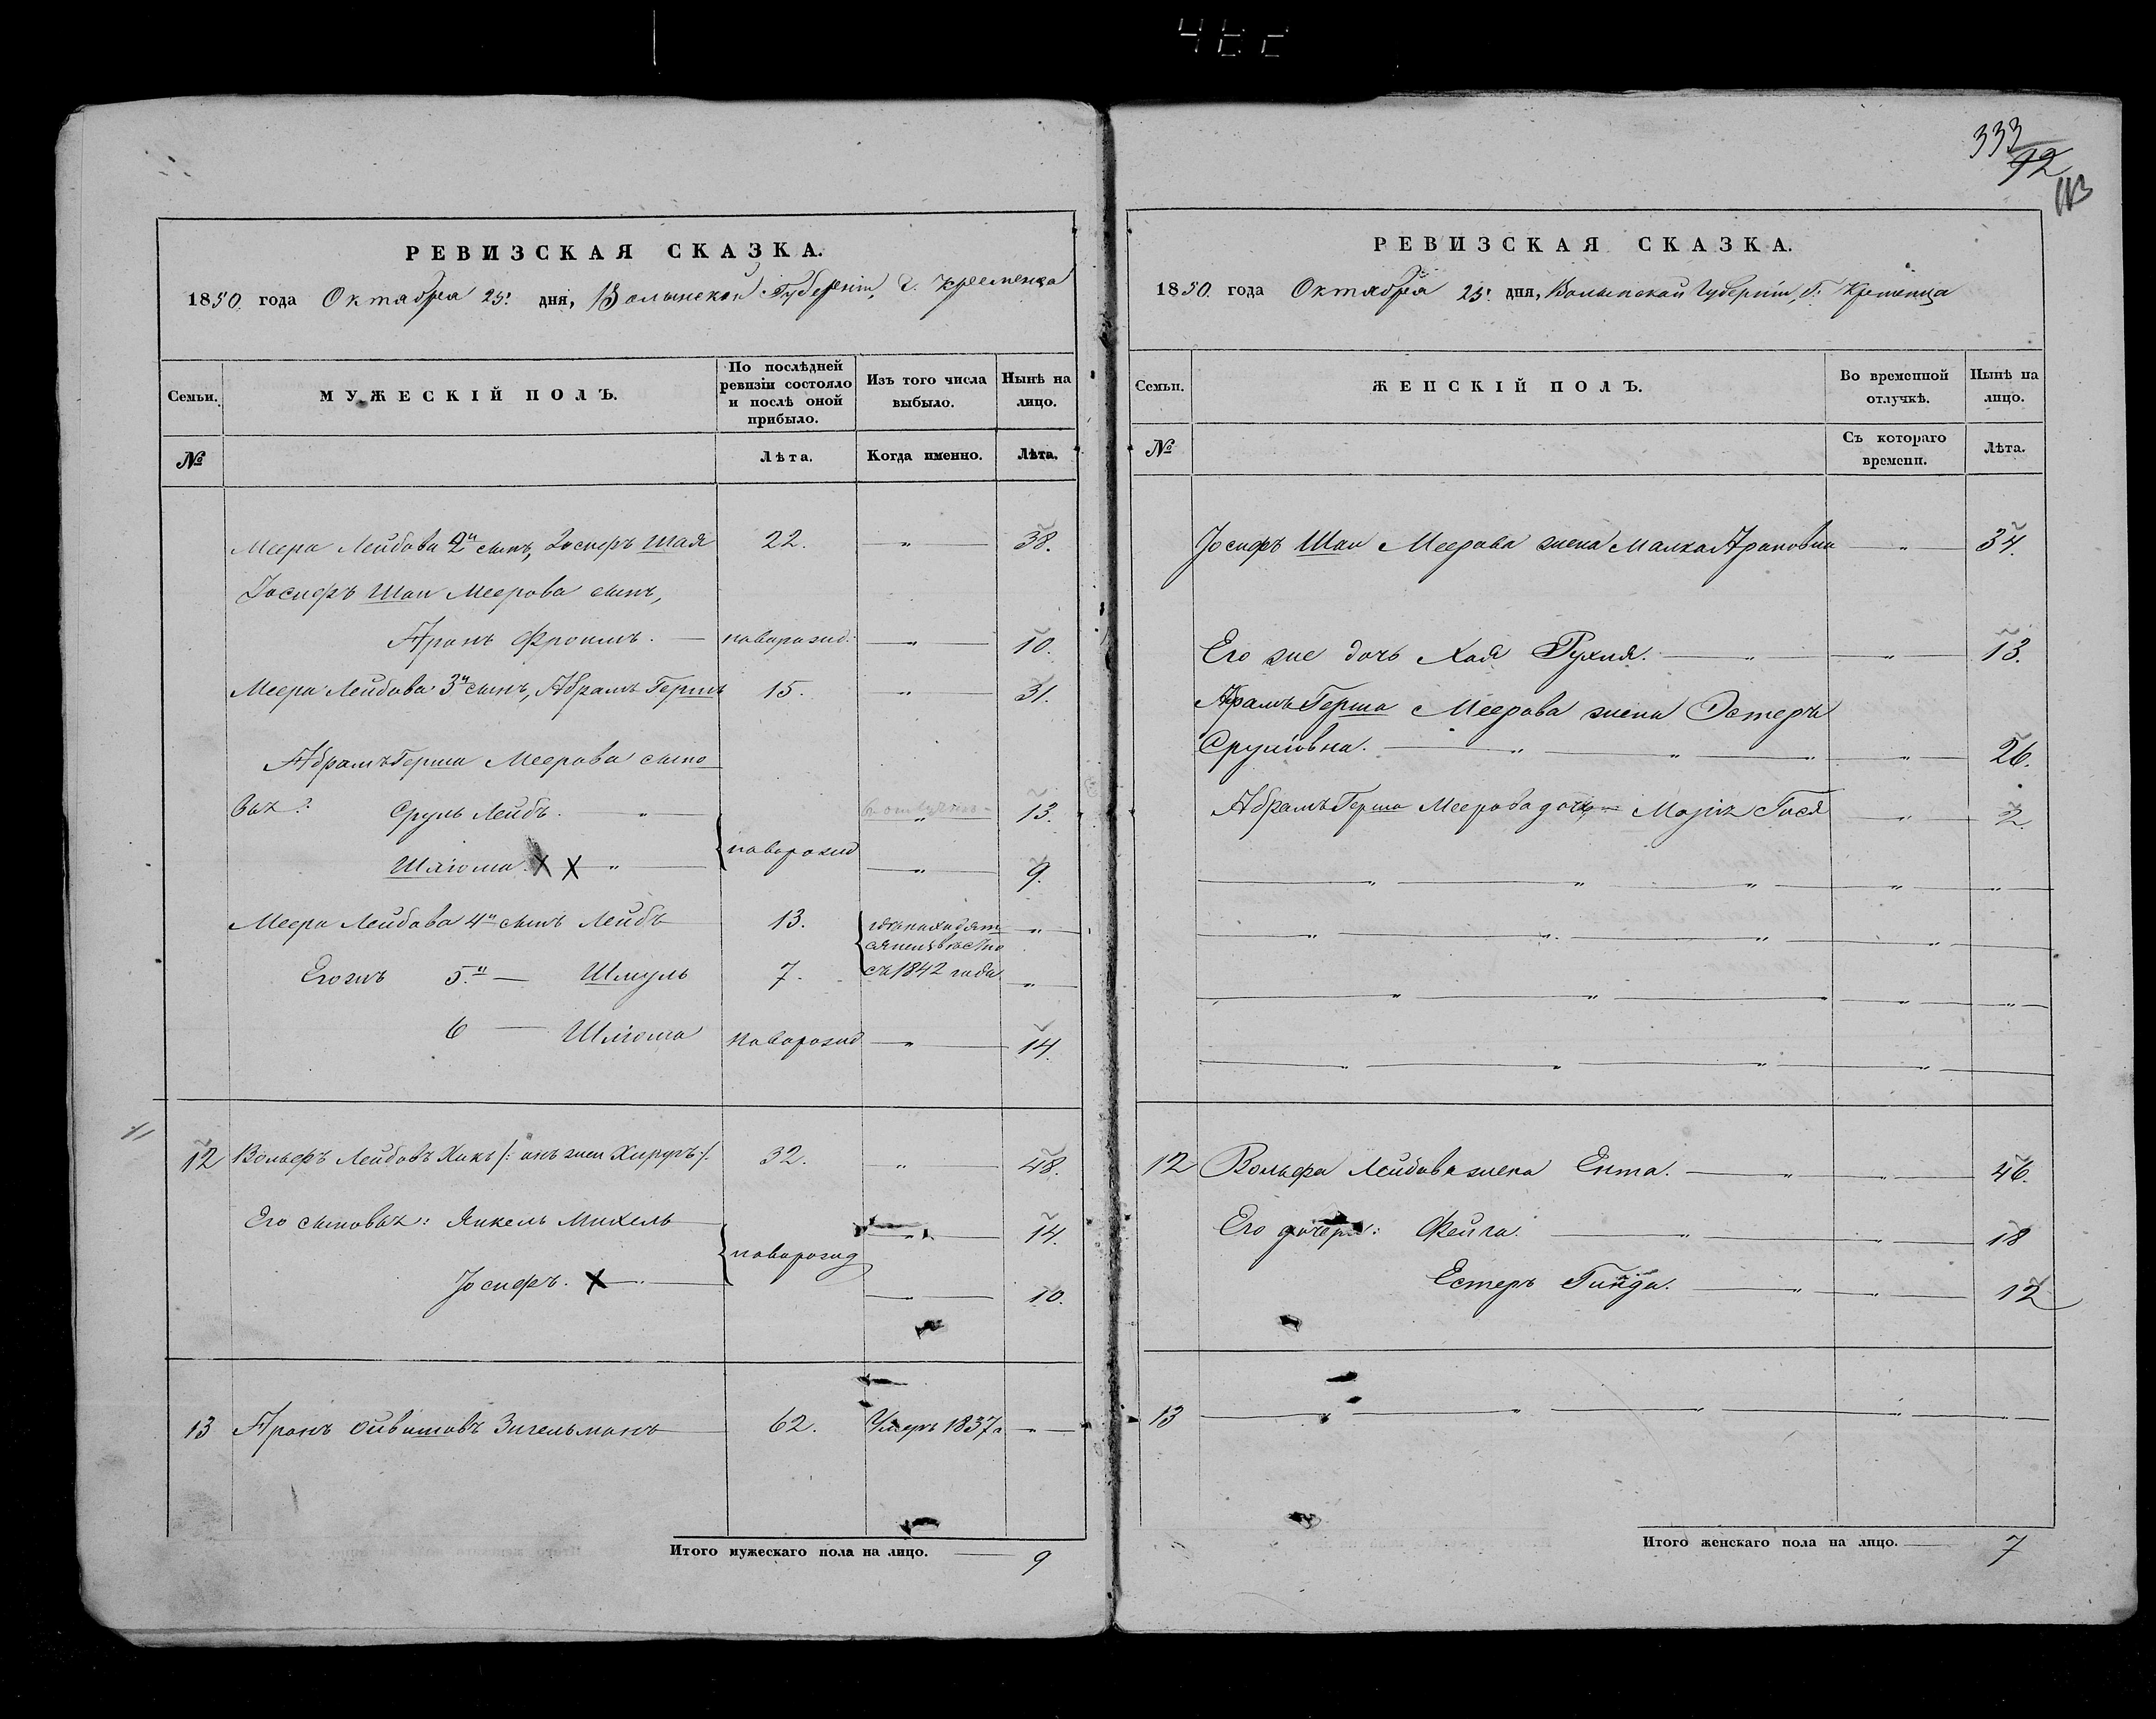 333
92
113
РЕВИЗСКАЯ СКАЗКА.
1850. года Октября 25: дня, Волынской Губерніи, г. Кременца
Семьи.
МУЖЕСКІЙ ПОЛЪ.
По послѣдней ревизіи состояло и послѣ оной прибыло.
Изъ того числа выбыло.
Нынѣ на лицо.
№
Лѣта.
Когда именно.
Лѣта.
Меера Лейбова 2й сынъ, Іосифъ Шая 22. " 38.
Іосифъ Шаи Меерова сынъ,
Аронъ Фроимъ. новорожд. " 10.
Меера Лейбова 3й сынъ, Абрамъ Гершъ 15. " 31.
Абрамъ Герша Меерова сыно
вья: Сруль Лейбъ. " " 13.
Шліома. X X " новорожд " 9.
Меера Лейбова 4й сынъ Лейбъ 13. гдѣ находят "
ся неизвѣстно
Его жъ 5.й Шмуль 7. съ 1842 года "
6 Шліома новорожд " 14.
11
12 Вольфъ Лейбовъ Хикъ /: онъ же Хиругъ :/. 32. " 48.
Его сыновья: Янкель Михель " 14.
новорожд
Іосифъ. X " " 10.
13 Аронъ Ойвишовъ Зигельманъ 62. Умеръ 1837 г "
Итого мужескаго пола на лицо. 9
РЕВИЗСКАЯ СКАЗКА.
1850. года Октября 25: дня, Волынской Губерніи, г: Кременца
Семьи.
ЖЕНСКІЙ ПОЛЪ.
Во временной отлучкѣ.
Нынѣ на лицо.
№
Съ котораго времени.
Лѣта.
Іосифъ Шаи Меерова жена Малка Ароновна " 34.
Его же дочь Хая Рухля. " " 13.
Абрамъ Герша Меерова жена Эстеръ
Сруліовна. " " " " 26.
Абрамъ Герша Меерова дочь Маріх Гися " 2.
" " " " "
" " " "
" " " "
" " " "
12 Вольфа Лейбова жена Ента. " " 46.
Его дочери: Фейга. " " 18
Естеръ Гинда. " " 12
13 " " " " "
Итого женскаго пола на лицо. 7